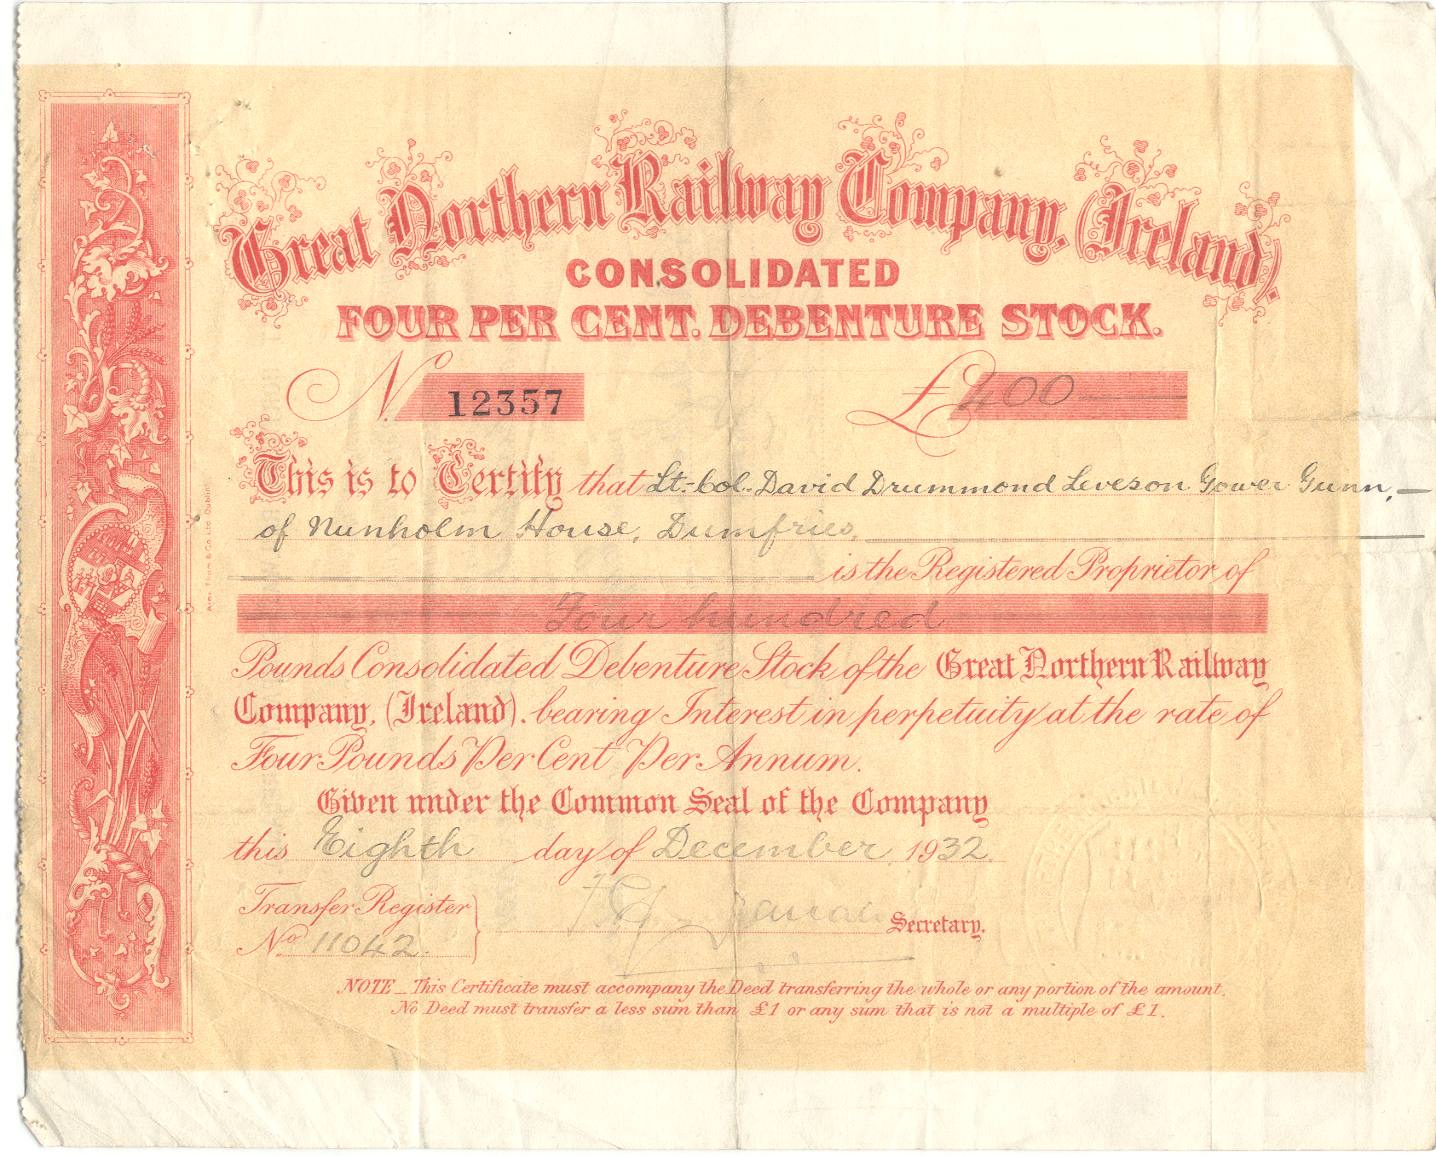 Great Northern Railway Company, (Ireland).
CONSOLIDATED
FOUR PER CENT. DEBENTURE STOCK.
No. 12357 £400
This is to Certify that Lt.-Col. David Drummond Leveson Gower Gunn,
of Nunholm House, Dumfries,
is the Registered Proprietor of
Four hundred
Pounds Consolidated Debenture Stock of the Great Northern Railway
Company, (Ireland), bearing Interest in perpetuity at the rate of
Four Pounds Per Cent Per Annum.
Given under the Common Seal of the Company
this Eighth day of December 1932.
Transfer Register
No 11042.
Secretary.
NOTE _ This Certificate must accompany the Deed transferring the whole or any portion of the amount.
No Deed must transfer a less sum than £1 or any sum that is not a multiple of £1.
Alex. Thom & Co. Ltd. Dublin